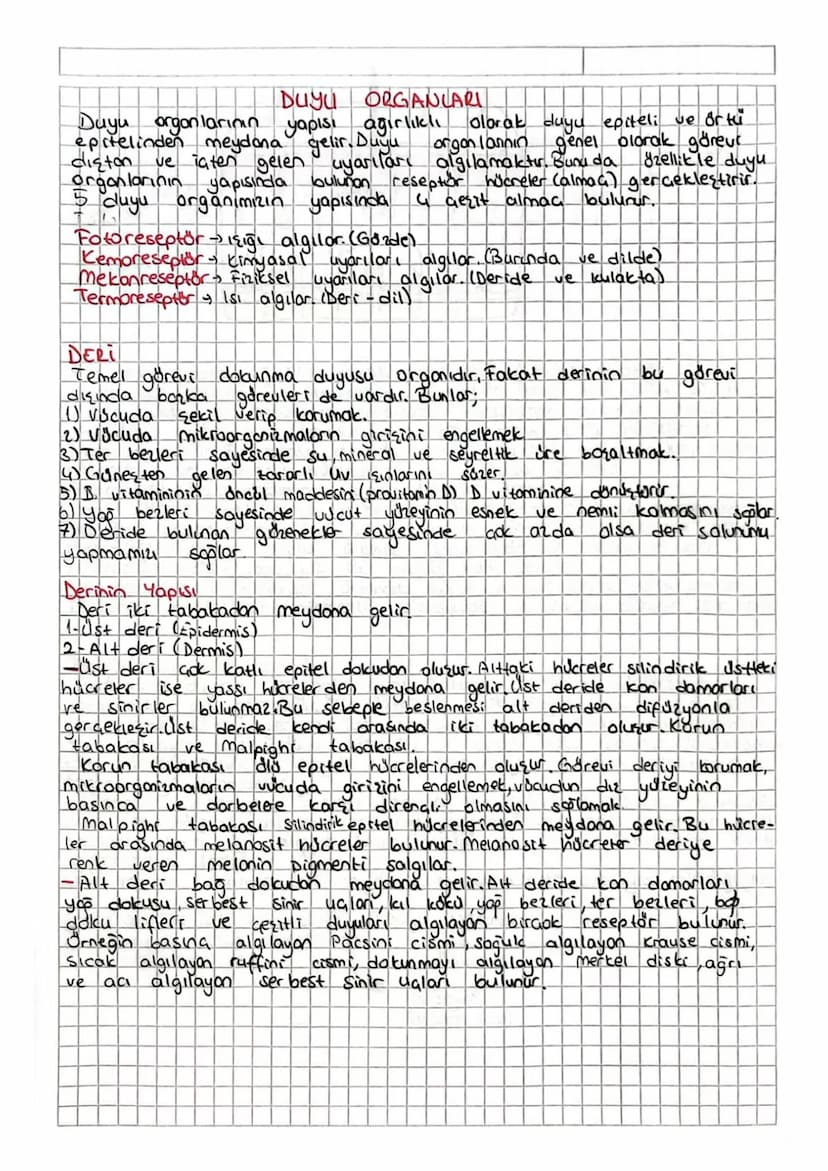 DUYU ORGANLARI
Duyu organlarının yapısı ağırlıklı olarak duyu epiteli ve örtü
epitelinden meydana gelir. Duyu organlarının genel olarak görevi
dıştan ve içten gelen uyarıları algılamaktır. Bunu da özelikle duyu
organlarının yapısında bulunan reseptör hücreler (almaç) gerçekleştirir.
5 duyu organımızın yapısında 4 çeşit almaç bulunur.
Fotoreseptör → ışığı algılar. (Gözde)
Kemoreseptör → kimyasal uyarıları algılar. (Burunda ve dilde)
Mekanreseptör → Fiziksel uyarıları algılar. (Deride ve kulakta)
Termoreseptör → Isı algılar. (Deri - dil)
DERİ
Temel görevi dokunma duyusu organıdır. Fakat derinin bu görevi
dışında başka görevleri de vardır. Bunlar;
1) Vücuda şekil verip korumak.
2) Vücuda mikroorganizmaların girişini engellemek
3) Ter bezleri sayesinde su, mineral ve seyreltik üre boşaltmak.
4) Güneşten gelen zararlı UV ışınlarını süzer.
5) D vitamininin öncül maddesini (provitamin D) D vitaminine dönüştürür.
6) Yağ bezleri sayesinde vücut yüzeyinin esnek ve nemli kalmasını sağlar.
7) Deride bulunan gözenekler sayesinde çok azda olsa deri solunumu
yapmamızı sağlar.
Derinin Yapısı
Deri iki tabakadan meydana gelir.
1-Üst deri (Epidermis)
2-Alt deri (Dermis)
-Üst deri çok katlı epitel dokudan oluşur. Alttaki hücreler silindirik üstteki
hücreler ise yassı hücrelerden meydana gelir. Üst deride kan damarları
ve sinirler bulunmaz. Bu sebeple beslenmesi alt deriden difüzyonla
gerçekleşir. Üst deride kendi arasında iki tabakadan oluşur. Korun
tabakası ve Malpighi tabakası.
Korun tabakası ölü epitel hücrelerinden oluşur. Görevi deriyi korumak,
mikroorganizmaların vücuda girişini engellemek, vücudun dış yüzeyinin
basınca ve darbelere karşı dirençli olmasını sağlamak.
Malpighi tabakası silindirik epitel hücrelerinden meydana gelir. Bu hücre-
ler arasında melanosit hücreler bulunur. Melanosit hücreler deriye
renk veren melonin pigmenti salgılar.
- Alt deri bağ dokudan meydana gelir. Alt deride kan damarları,
yağ dokusu, serbest sinir uçları, kıl kökü, yağ bezleri, ter bezleri, bağ
doku lifleri ve çeşitli duyuları algılayan birçok reseptör bulunur.
Örneğin basınç algılayan Pacsini cismi, soğuk algılayan krause cismi,
sıcak algılayan ruffini cismi, dokunmayı algılayan merkel diski, ağrı
ve acı algılayan serbest sinir uçları bulunur.